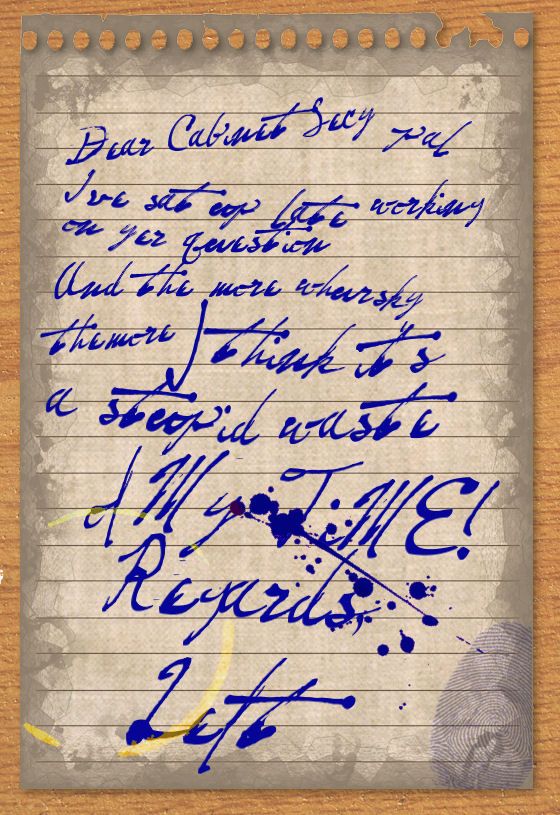 Dear Cabinet Secy Pal
I've sat oop late working
on yer qvestion
And the more wheursky
themore I think it's
a stoopid waste
of My TiME!
Regards,
Left